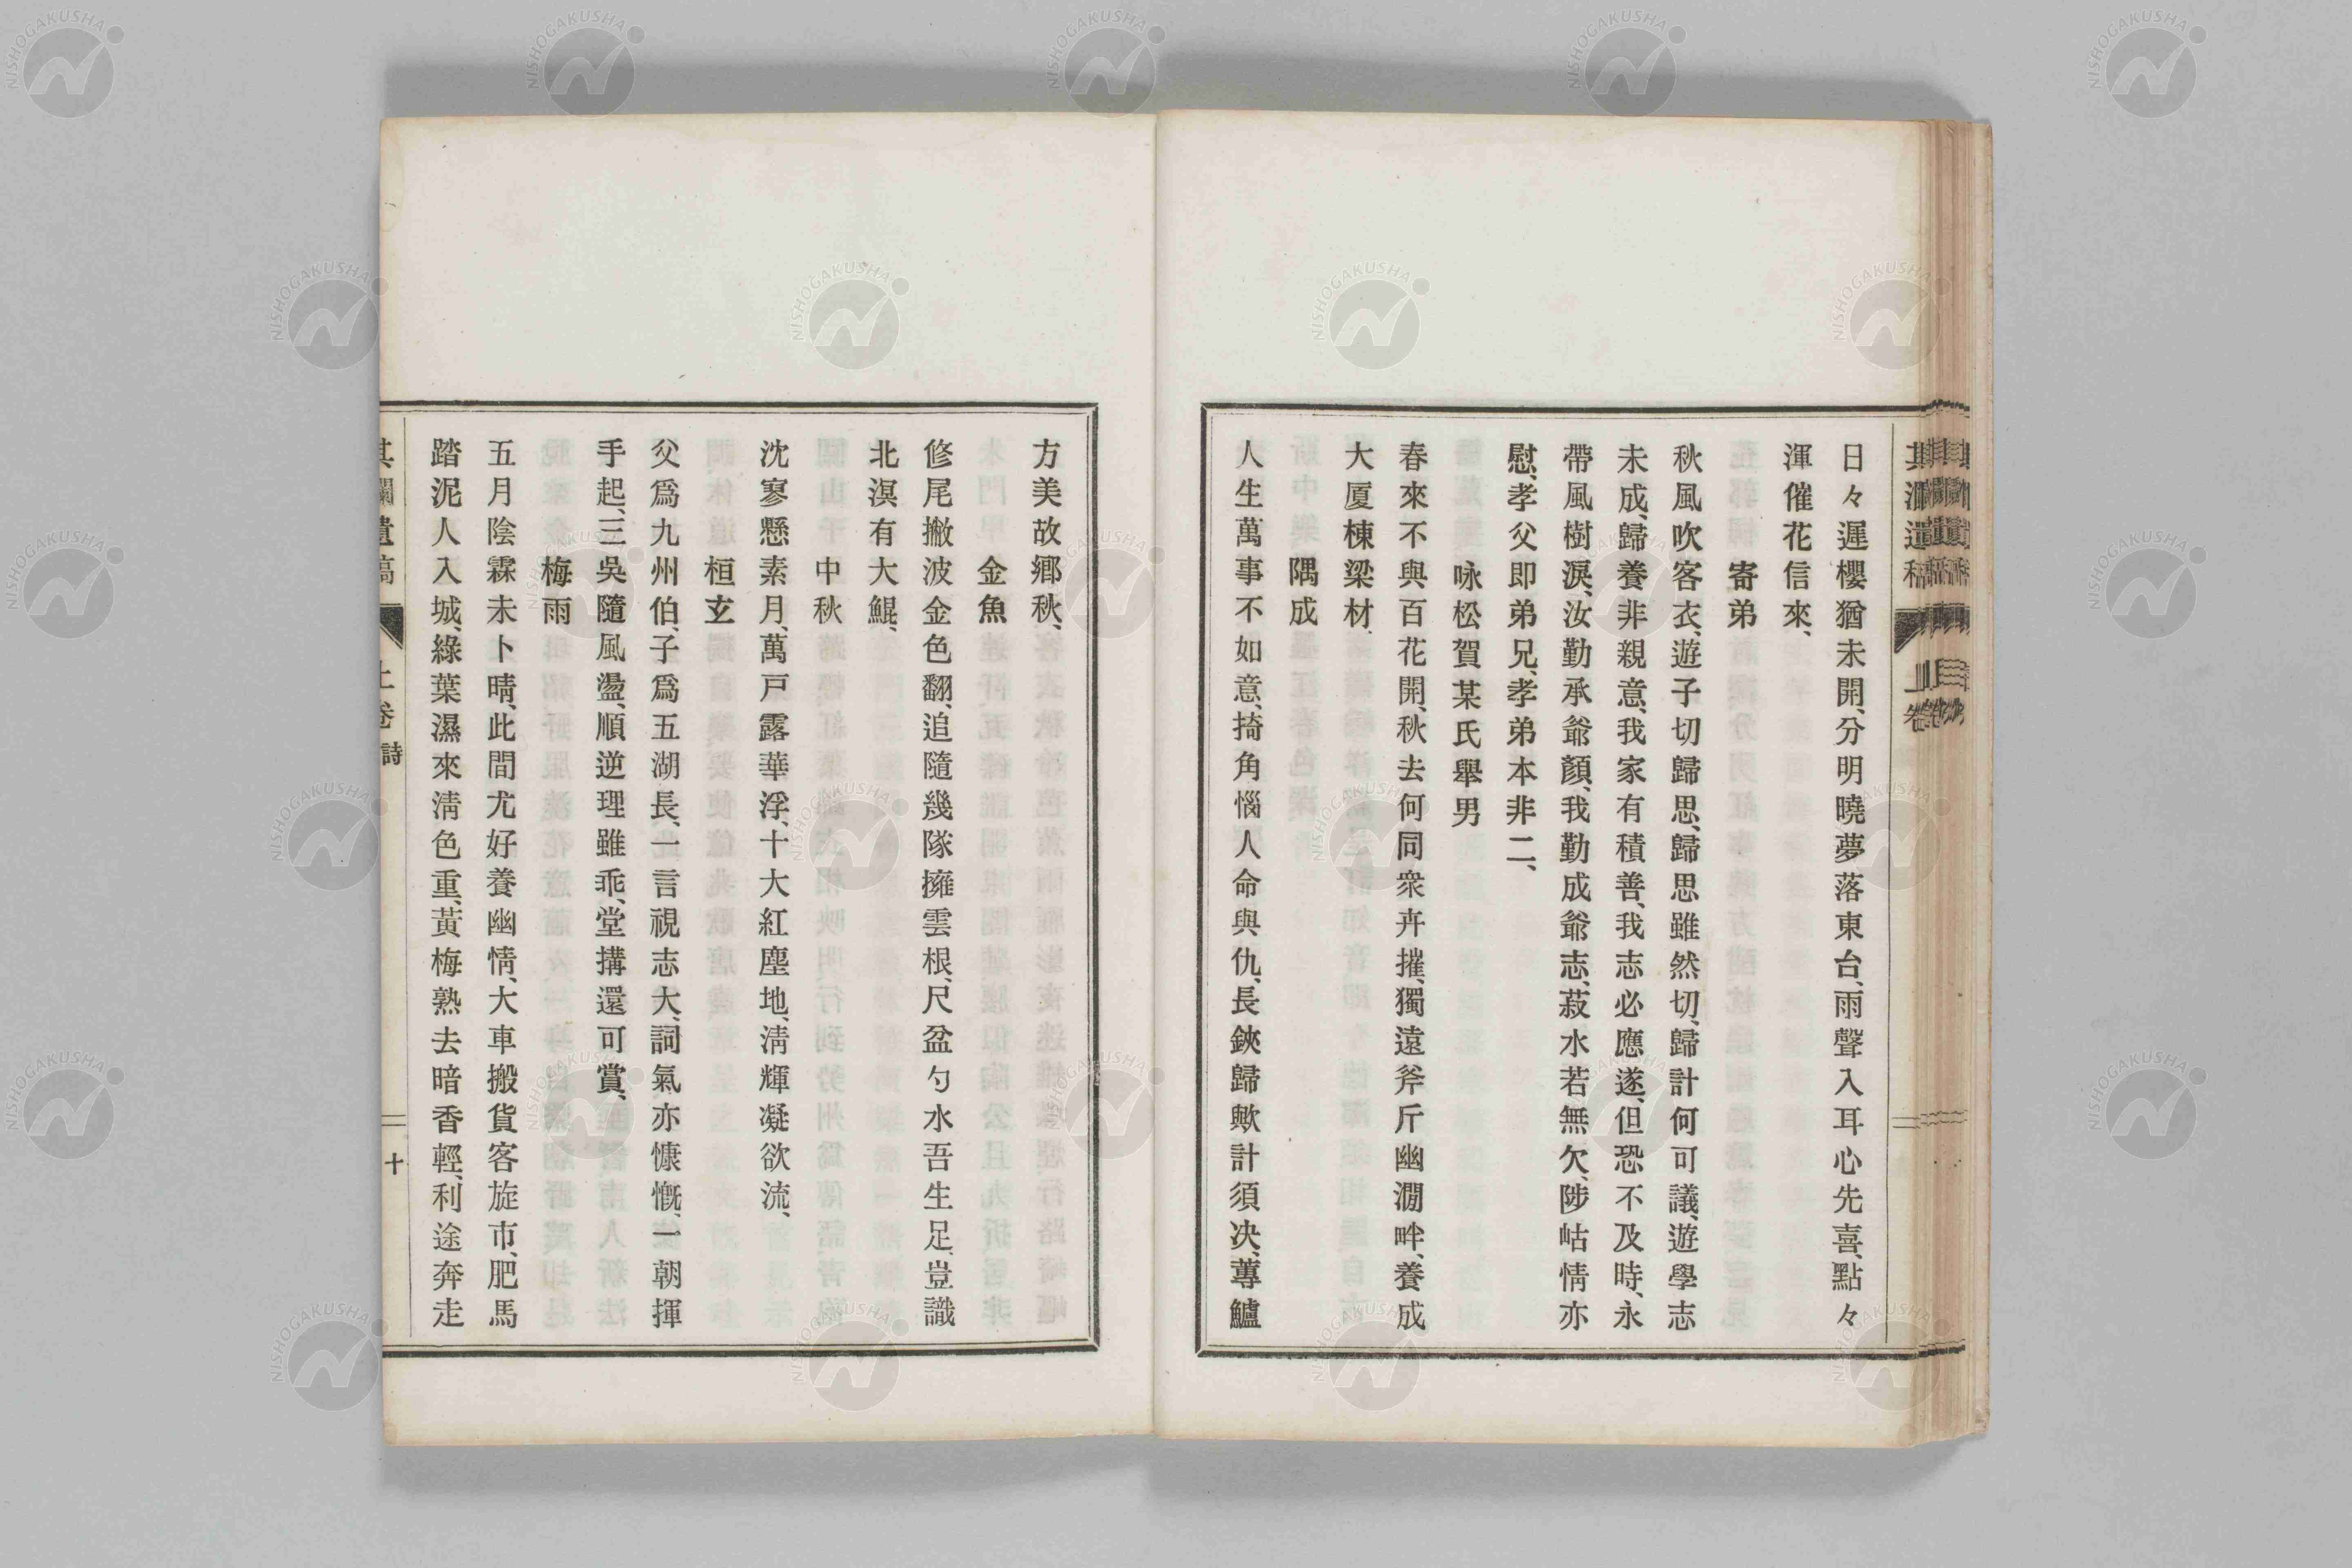 日々遲櫻猶未開、分明曉夢落東台、雨聲入耳心先喜、點々
渾催花信來、
寄弟
秋風吹客衣、遊子切歸思、歸思雖然切、歸計何可議、遊學志
未成、歸養非親意、我家有積善、我志必應遂、但恐不及時、永
帶風樹淚、汝勤承爺顏、我勤成爺志、菽水若無欠、陟岵情亦
慰、孝父即弟兄、孝弟本非二、
咏松賀某氏舉男
春來不與百花開、秋去何同衆卉摧、獨遠斧斤幽澗畔、養成
大厦棟梁材、
隅成
人生萬事不如意、掎角惱人命與仇、長鋏歸歟計須决、蓴鱸
方美故鄉秋、
金魚
修尾撇波金色翻、追隨幾隊擁雲根、尺盆勺水吾生足、豈識
北溟有大鯤、
中秋
沈寥懸素月、萬戶露華浮、十大紅塵地、淸輝凝欲流、
桓玄
父爲九州伯、子爲五湖長、一言視志大、詞氣亦慷慨、一朝揮
手起、三吳隨風盪、順逆理雖乖、堂搆還可賞、
梅雨
五月陰霖未卜晴、此間尤好養幽情、大車搬貨客旋市、肥馬
踏泥人入城、綠葉濕來淸色重、黃梅熟去暗香輕、利途奔走
遺稿 上卷 詩 十
NISHOGAKUSHA